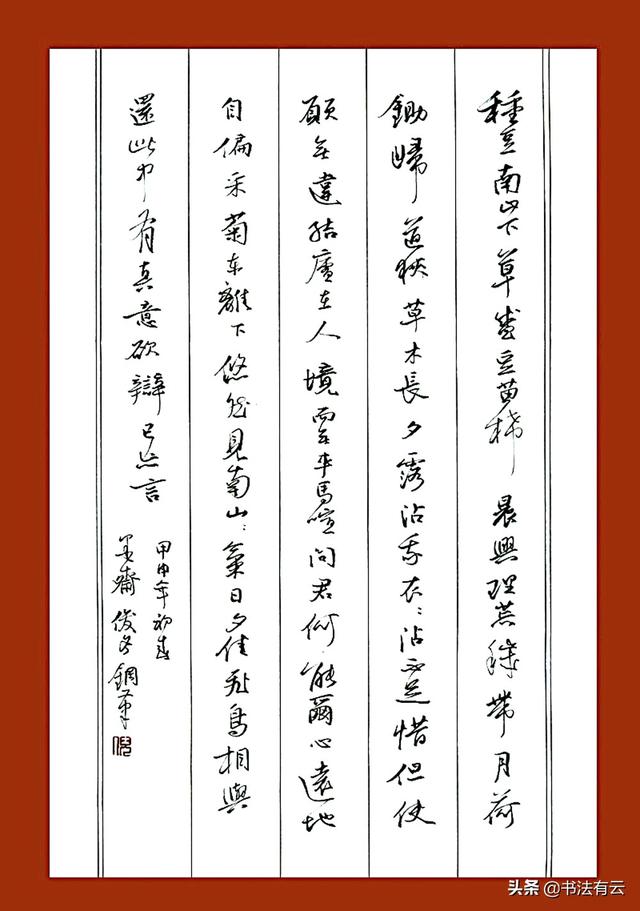 種豆南山下草盛豆苗稀晨興理荒穢帶月荷
鋤歸道狹草木長夕露沾我衣〻沾不足惜但使
願無違結廬在人境而無車馬喧問君何能爾心遠地
自偏采菊東籬下悠然見南山〻氣日夕佳飛鳥相與
還此中有真意欲辯已忘言
甲申年初春
齋俊鋼筆
头条 @书法有云